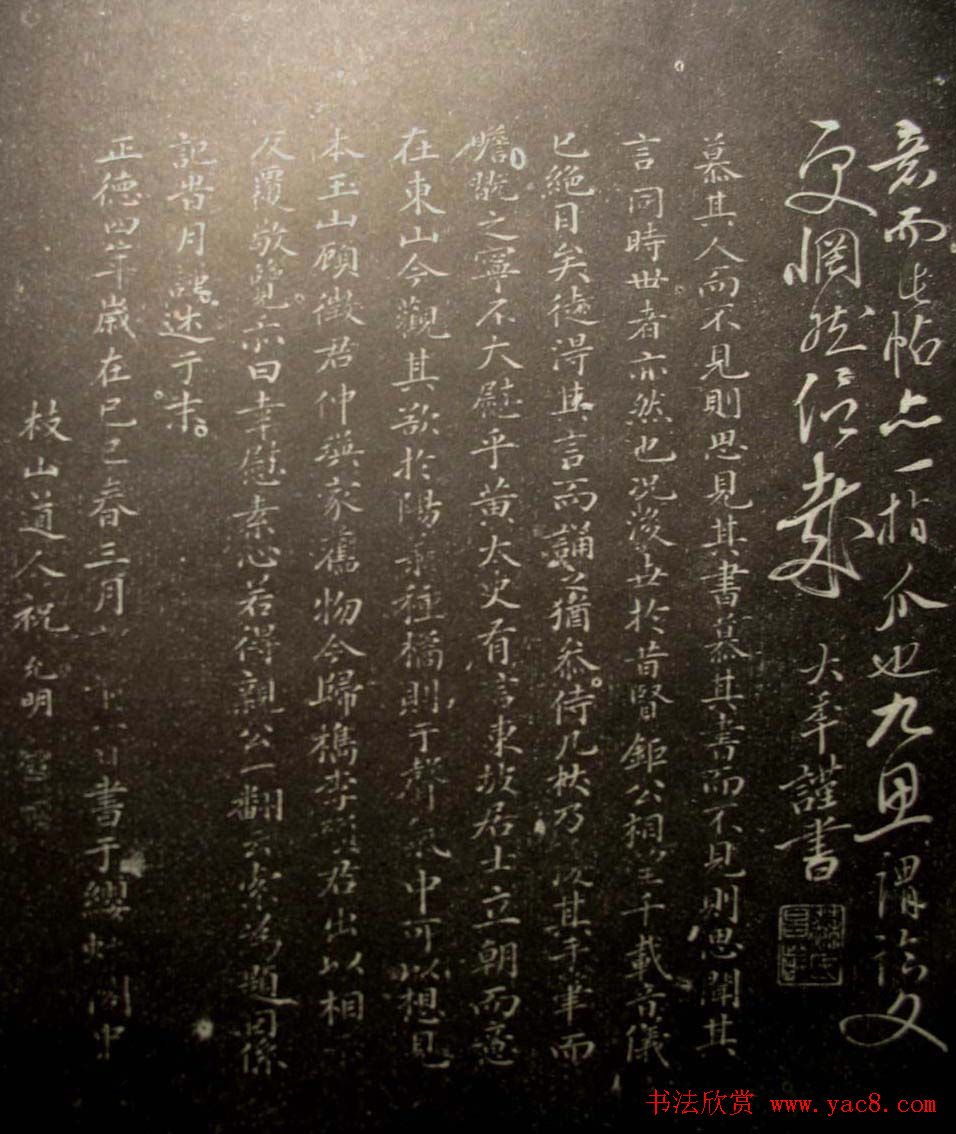 意而此帖亦一指爪也九思謂詒文
更惘然信哉 大年謹書
慕其人而不見則思見其書慕其書而不見則思聞其
言同時世者亦然也況後世於昔賢鉅公相望千載音儀
已絶目矣徒得其言而誦之猶忝侍几杖乃又其手筆而
瞻翫之寧不大慰乎黄太史有言東坡居士立朝而意
在東山今觀其欲於陽羨種橘則于聲氣中可以想見
本玉山顧徵君仲瑛家舊物今歸檇李項君出以相
反覆敬覽亦曰幸慰素心若得親公一翻云索為題因係
記昔月謹述于末
正德四年歲在己巳春三月 日書于纓 閣中
枝山道人祝允明
书法欣赏 www.yac8.com